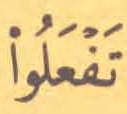 تَفْعَلُوا۟